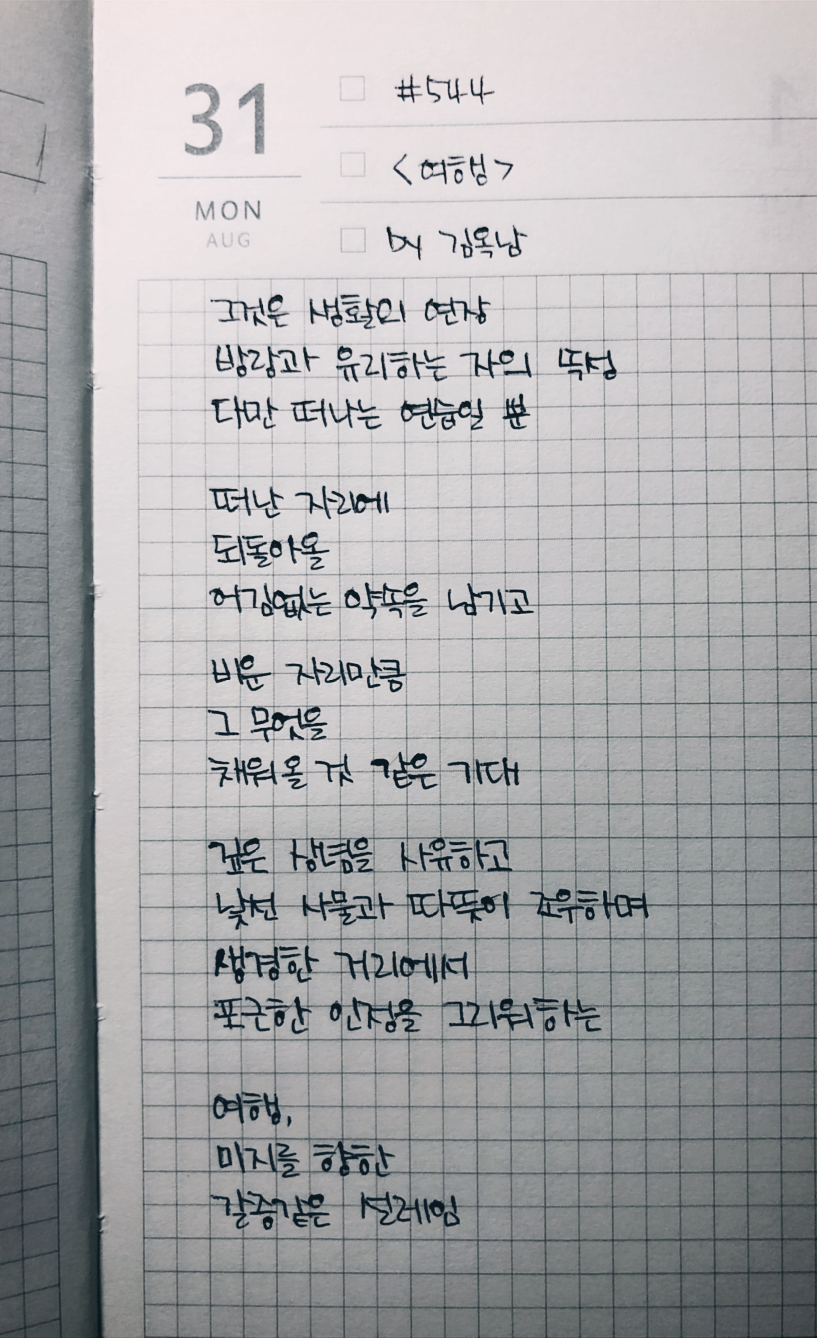 31
MON
AUG
#544
<여행>
by 김옥남
그것은 생활의 연장
방랑과 유리하는 자의 뚝성
다만 떠나는 연습일 뿐
떠난 자리에
되돌아올
어김없는 약속을 남기고
비운 자리만큼
그 무엇을
채워올 것 같은 기대
깊은 상념을 사유하고
낯선 사물과 따뜻이 조우하며
생경한 거리에서
포근한 안정을 그리워하는
여행,
미지를 향한
갈증같은 설레임